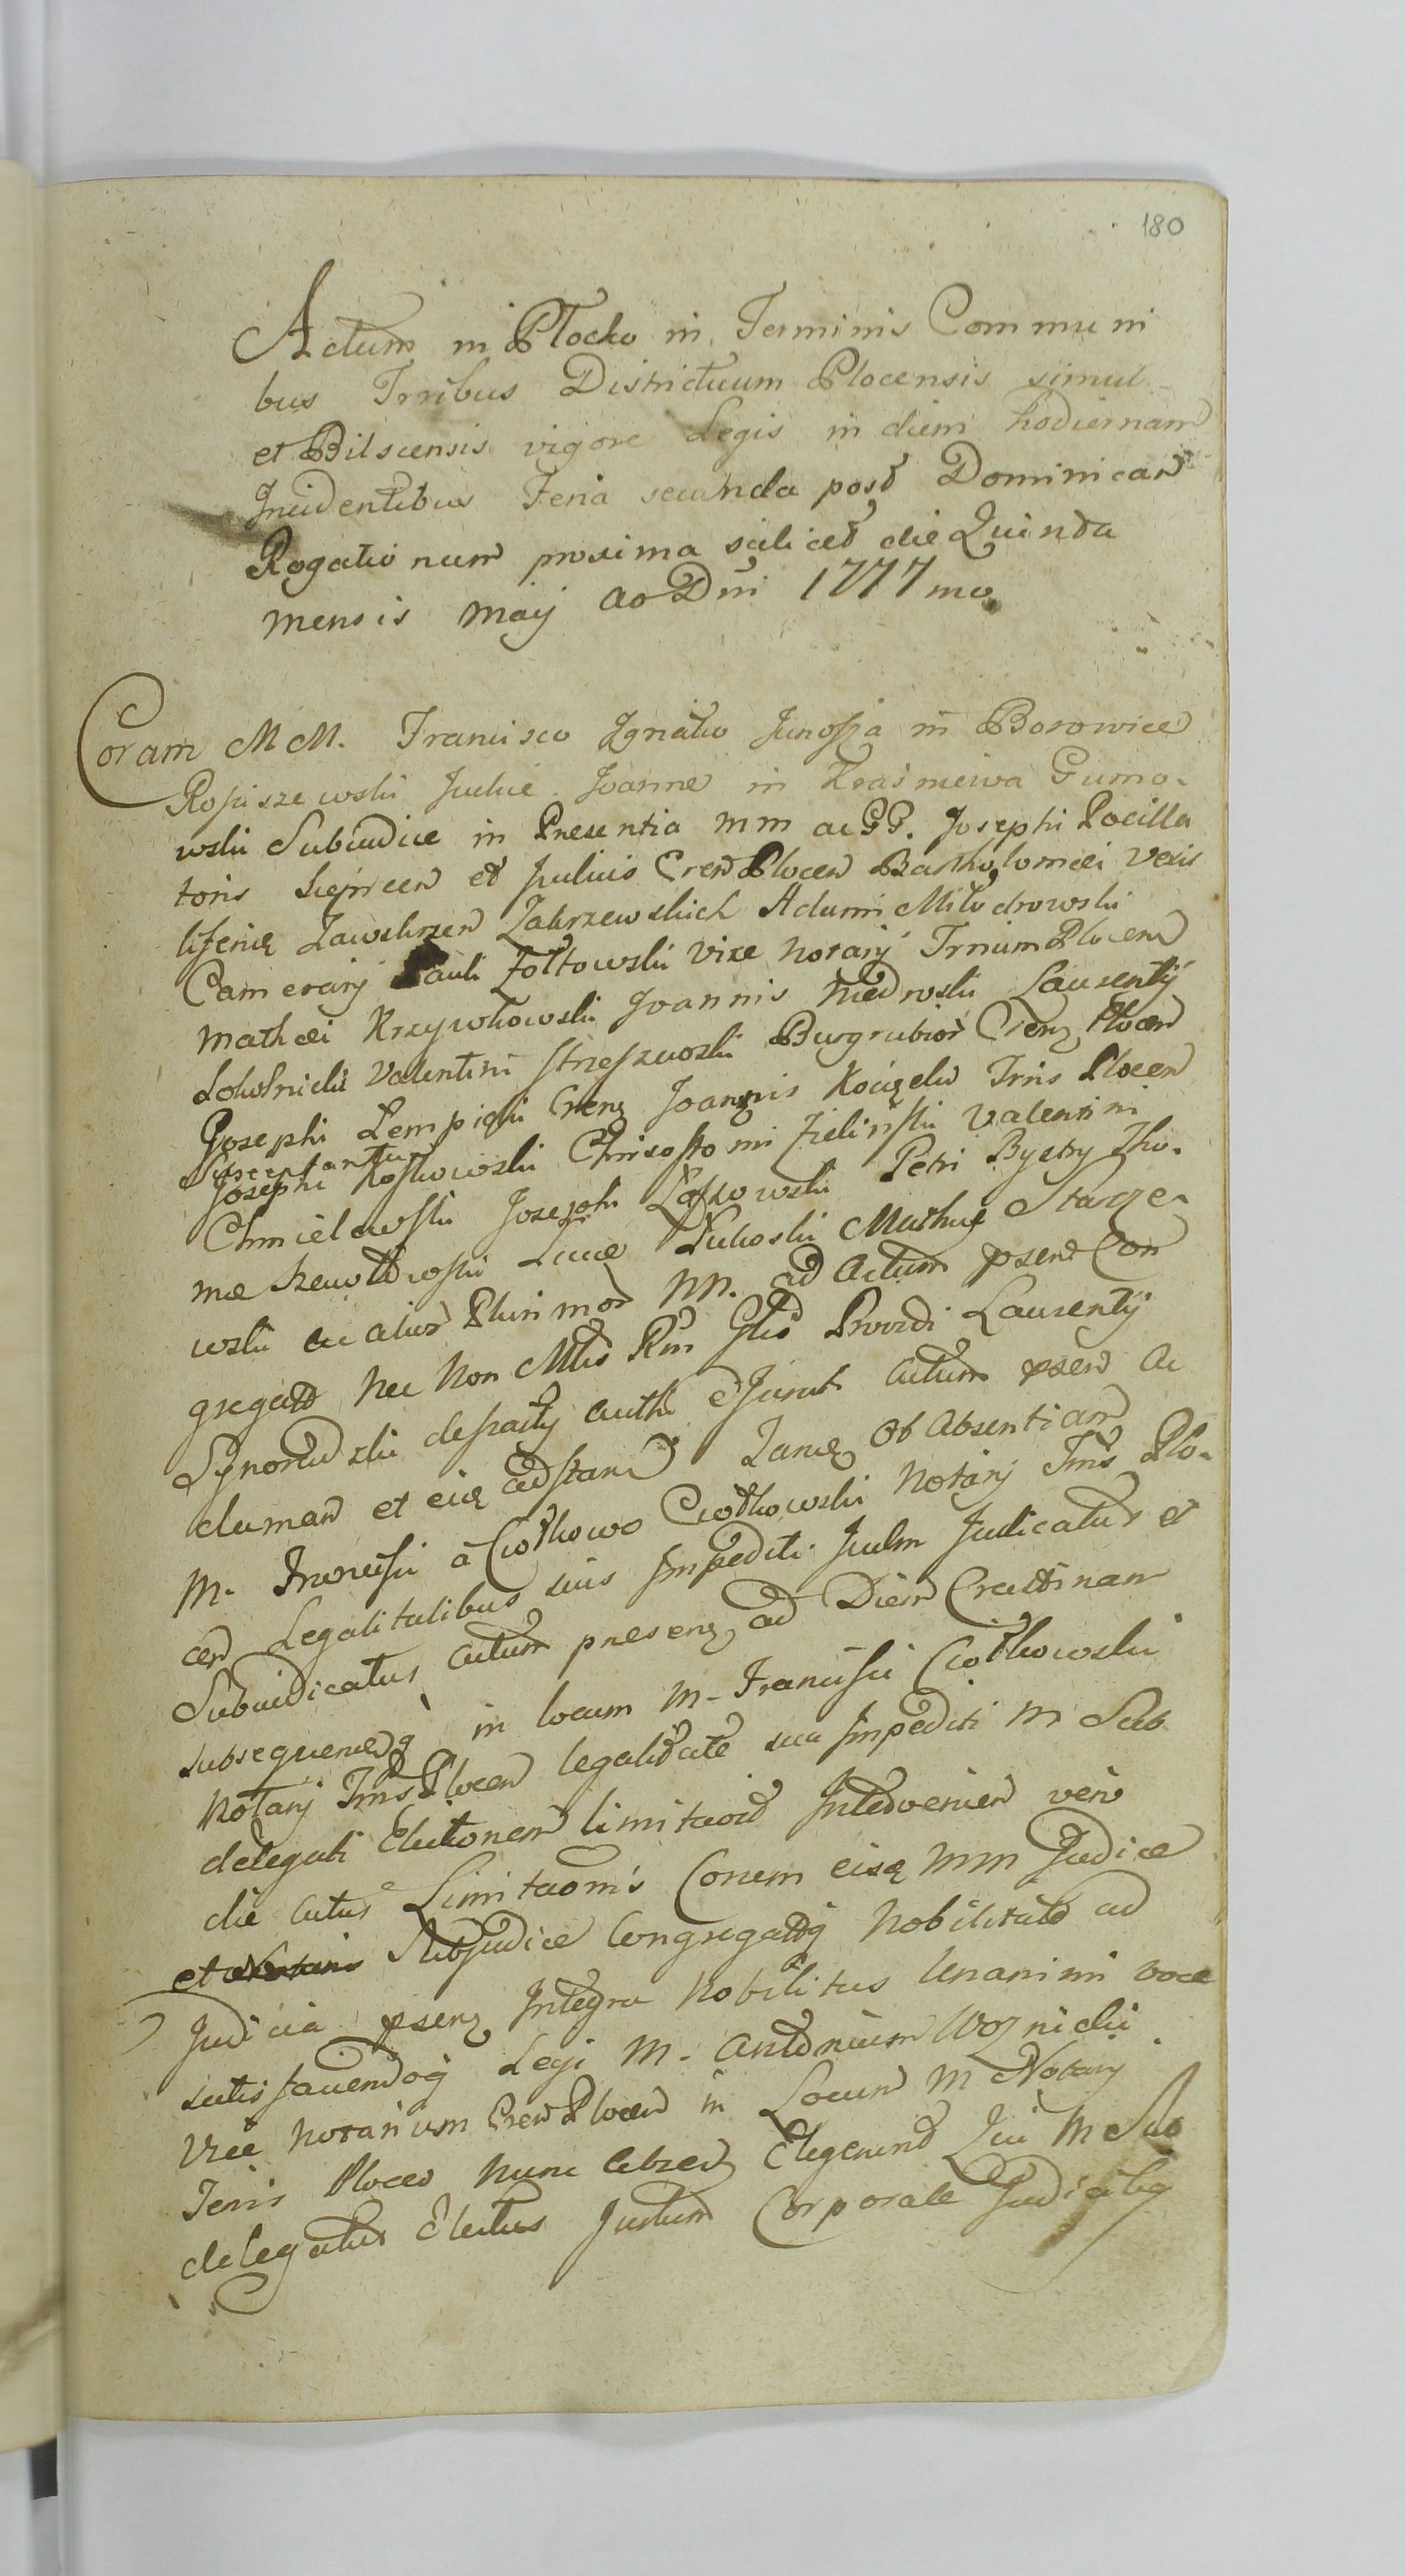 180
Actum in Płocko in Terminis Communi
bus Trribus Districtuum Plocensis simul
et Bilscensis vigore Legis in diem hodiernam
Incidentibus Feria secunda post Dominicam
Rogationum proxima scilicet die Quinta
mensis Maij Ao Dni 1777mo
Coram MM. Francisco Ignatio Junosza in Borowice
Rosciszewski Judice Joanne in Krasniewa Gumo-
wski Subiudice in Presentia MM ac GG. Josephi Pocilla
toris et Judicis Cren Plocen Bartholomei Vexi
liferi Zawskrzen Zakrzewskich Adami Miłodrowski
Camerarij Pauli Żołtowski Vice Notarij Trrium Plocen
Mathei Krzywkowski Joannis Niedroski Laurentij
Sokolnicki Valentini Strzeszewski Burgrabior Cren Plocen
Josephi Lempicki Cren Joannis Trris Plocen
Susceptantium
Josephi Koskowski Chrisostomi Zielinski Valentini
Chmielewski Josephi Petri Bystry Tho-
mæ Lucæ Łukoski Mathiæ Starze-
wski ac alior Plurimor NN. ad Actum psen Con
gregatt nec non Mtis Rgi Glis Provdi Laurentij
authi et Jurati actum psen ac
claman et eiq adstan Ob Absentiam
M. Francisci a Ciołkowo Ciołkowski Notarij Trris Plo-
cen Legalitatibus suis Impediti Judm Judicatus et
Subiudicatus actum presen ad Diem Crastinam
subsequenem in locum M. Francisci Ciołkowski
Notarij Trris Plocen legalitate sua Impediti M Sub
delegati Electionem limitavit Intervenien vero
die actus Limitaonis Coram eisq MM Judice
et Subjudice Congregattq Nobilitate ad
Judicia psen Integra Nobilitas Unanimi voce
satisfaciendoq Legi M. Antonium Woznicki
Vice Notarium Cren Plocen in Locum M Notarij
Terris Plocen nunc absen Elegerunt Qui M Sub
delegatus Electus Justum Corporale Judicialiq